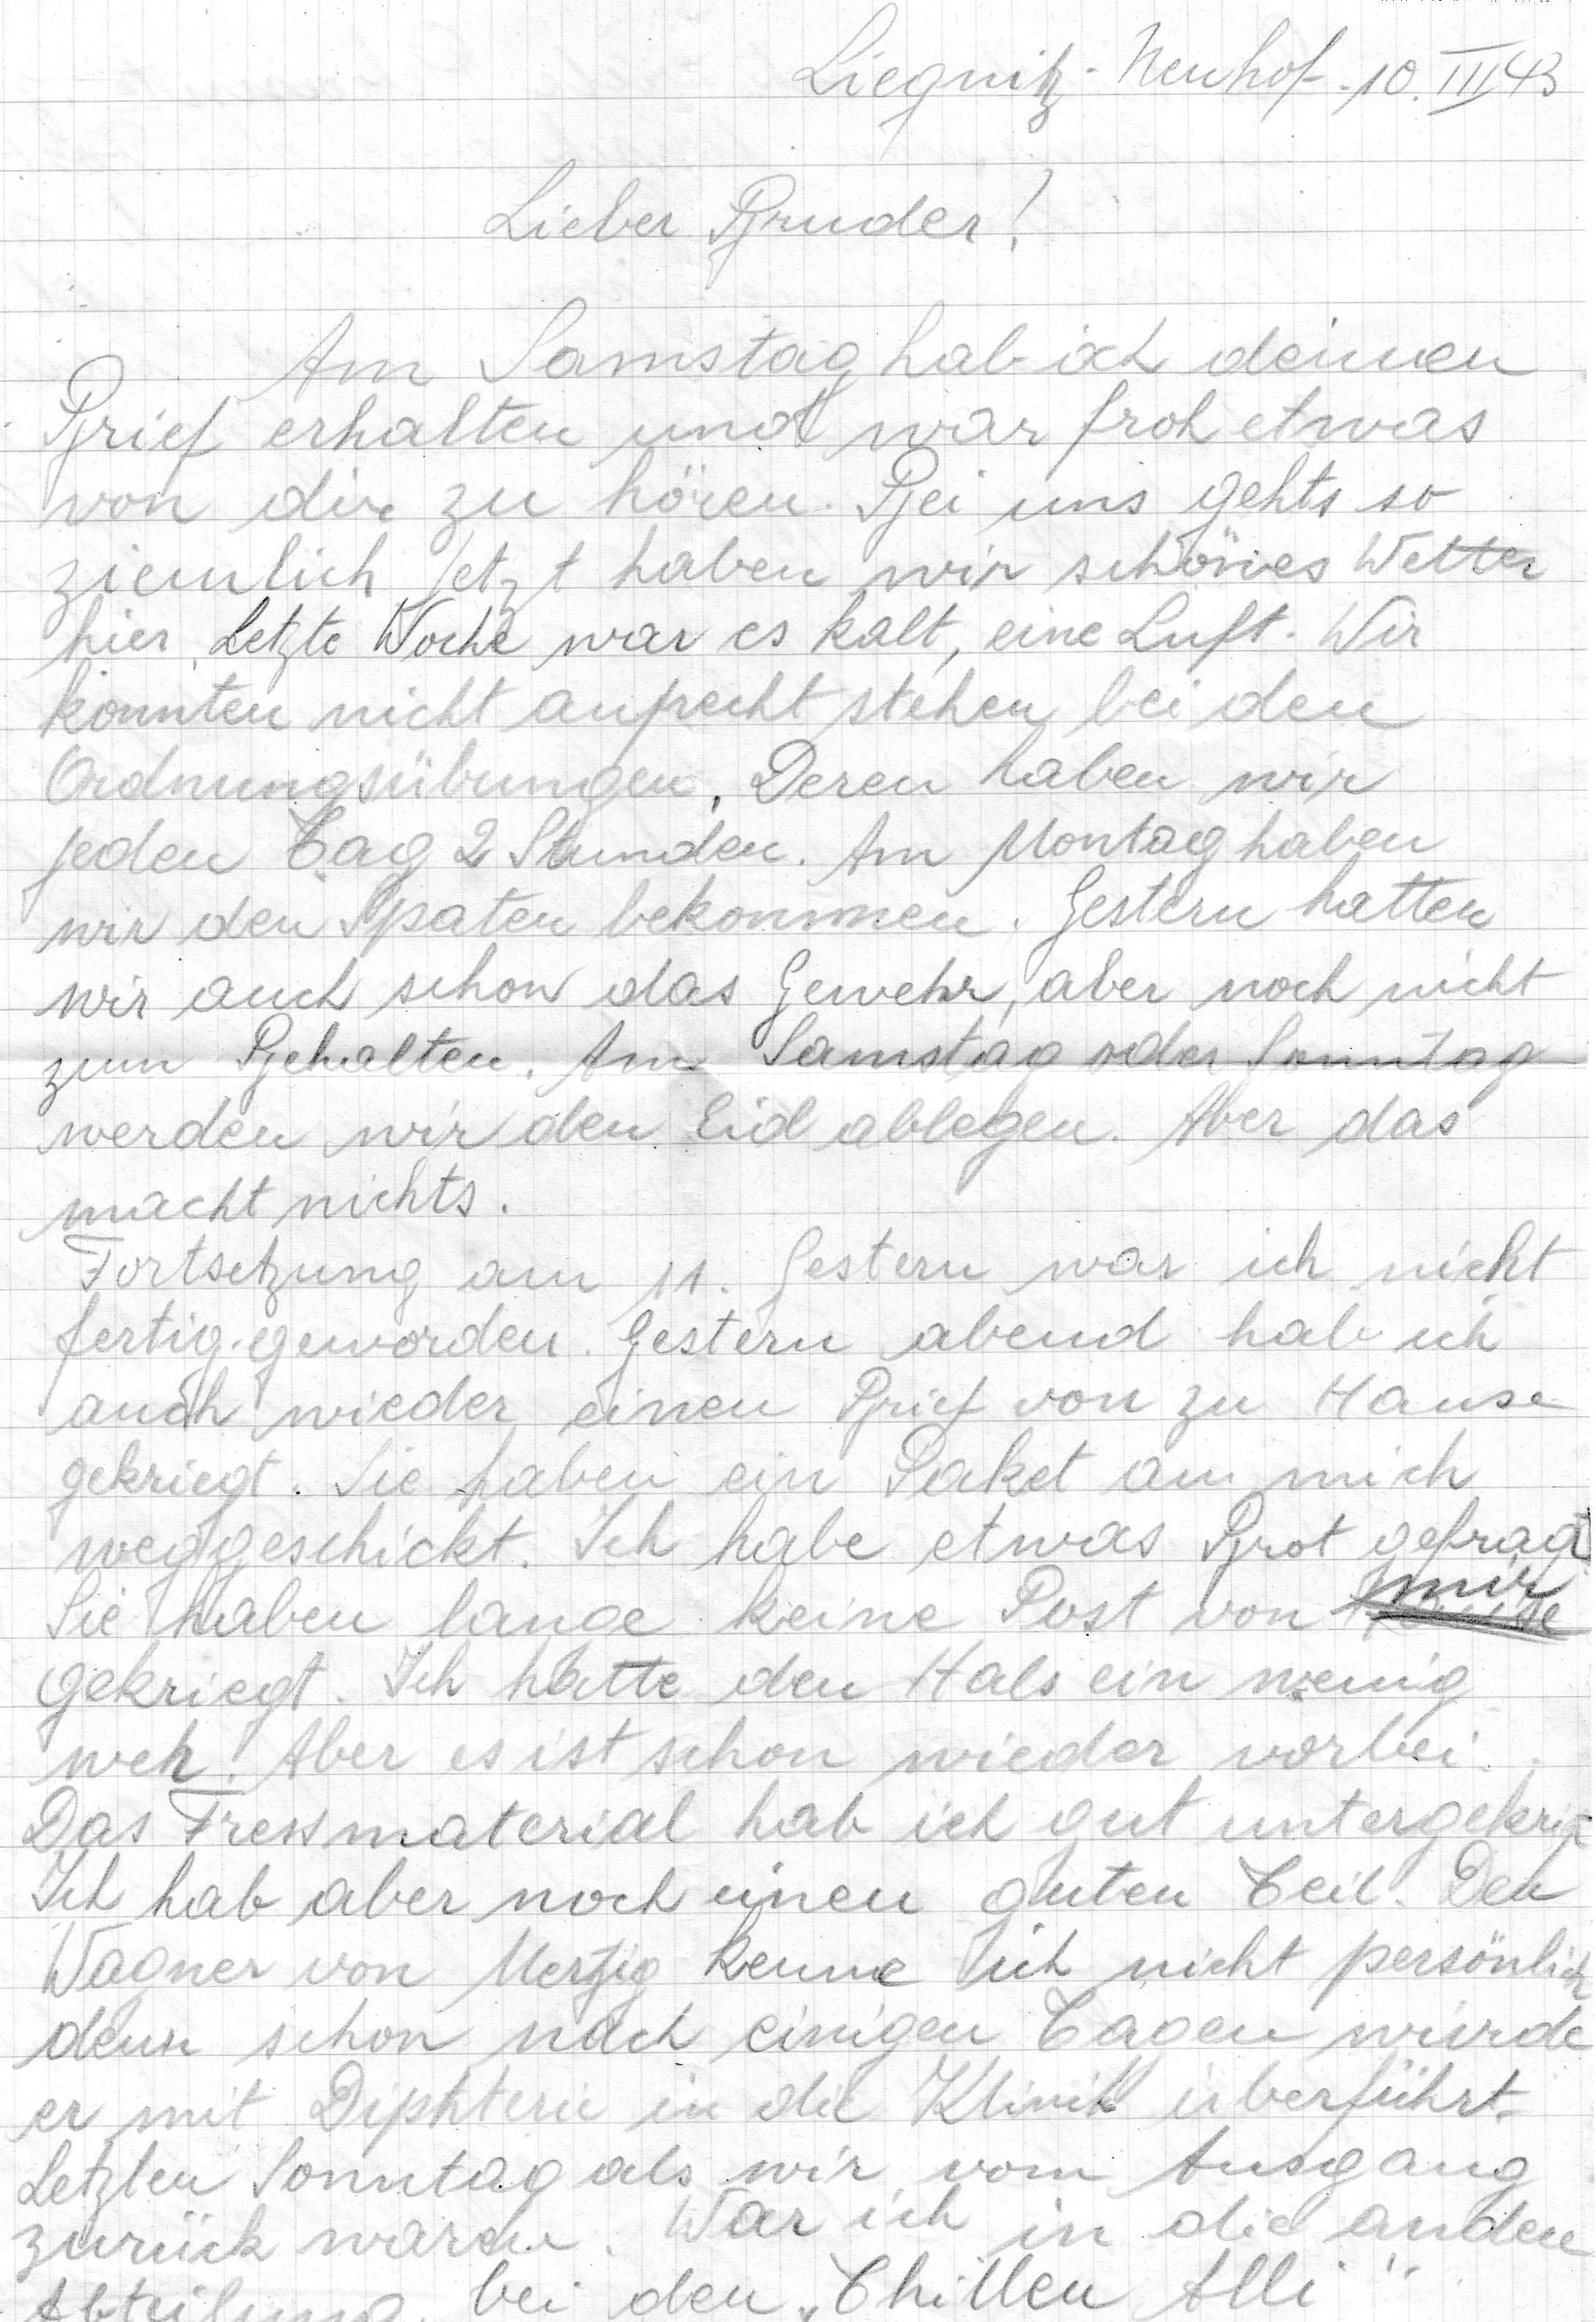 Liegnitz-Neuhof-10.III 43
Lieber Bruder!
Am Samstag hab ich deinen
Brief erhalten und war froh etwas
von dir zu hören. Bei uns gehts so
ziemlich Jetzt haben wir schönes Wetter
hier. Letzte Woche war es kalt, eine Luft. Wir
konnten nicht aufrecht stehen bei den
Ordnungsübungen. Deren haben wir
jeden Tag 2 Stunden. Am Montag haben
wir den Spaten bekommen. Gestern hatten
wir auch schon das Gewehr, aber noch nicht
zum Behalten. Am Samstag oder Sonntag
werden wir den Eid ablegen. Aber das
macht nichts.
Fortsetzung am 11. Gestern war ich nicht
fertig geworden. Gestern abend hab ich
auch wieder einen Brief von zu Hause
gekriegt. Sie haben ein Paket an mich
weggeschickt. Ich habe etwas Brot gefragt
Sie haben lange keine Post von mir
gekriegt. Ich hatte den Hals ein wenig
weh. Aber es ist schon wieder vorbei.
Das Fressmaterial hab ich gut untergekri
Ich hab aber noch einen guten Teil. Den
Wagner von Merzig kenne ich nicht persönlich
denn schon nach einigen Tagen wurde
er mit Diphterie in die Klinik überführt.
Letzten Sonntag als wir vom Ausgang
zurück waren. War ich in die andere
Abteilung. bei den „Thillen Alli"